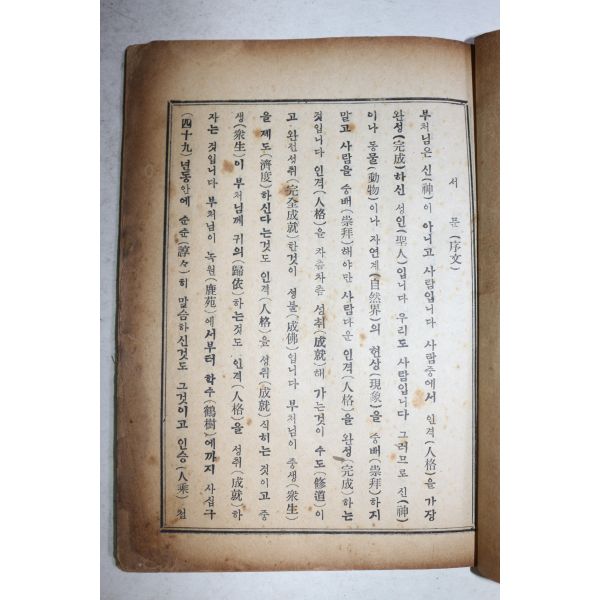 서 문(序文)
부처님은 신(神)이 아니고 사람입니다 사람중에서 인격(人格)을 가장
완성(完成)하신 성인(聖人)입니다 우리도 사람입니다 그러므로 신(神)
이나 동물(動物)이나 자연계(自然界)의 현상(現象)을 숭배(崇拜)하지
말고 사람을 숭배(崇拜)해야만 사람다운 인격(人格)을 완성(完成)하는
것입니다 인격(人格)을 차츰차츰 성취(成就)해 가는것이 수도(修道)이
고 완전성취(完全成就)한것이 성불(成佛)입니다 부처님이 중생(衆生)
을 제도(濟度)하신다는것도 인격(人格)을 성취(成就)식히는 것이고 중
생(衆生)이 부처님께 귀의(歸依)하는것도 인격(人格)을 성취(成就)하
자는 것입니다 부처님이 녹원(鹿苑)에서부터 학수(鶴樹)에까지 사십구
(四十九)년동안에 순순(諄々)히 말슴하신것도 그것이고 인승(人乘) 천